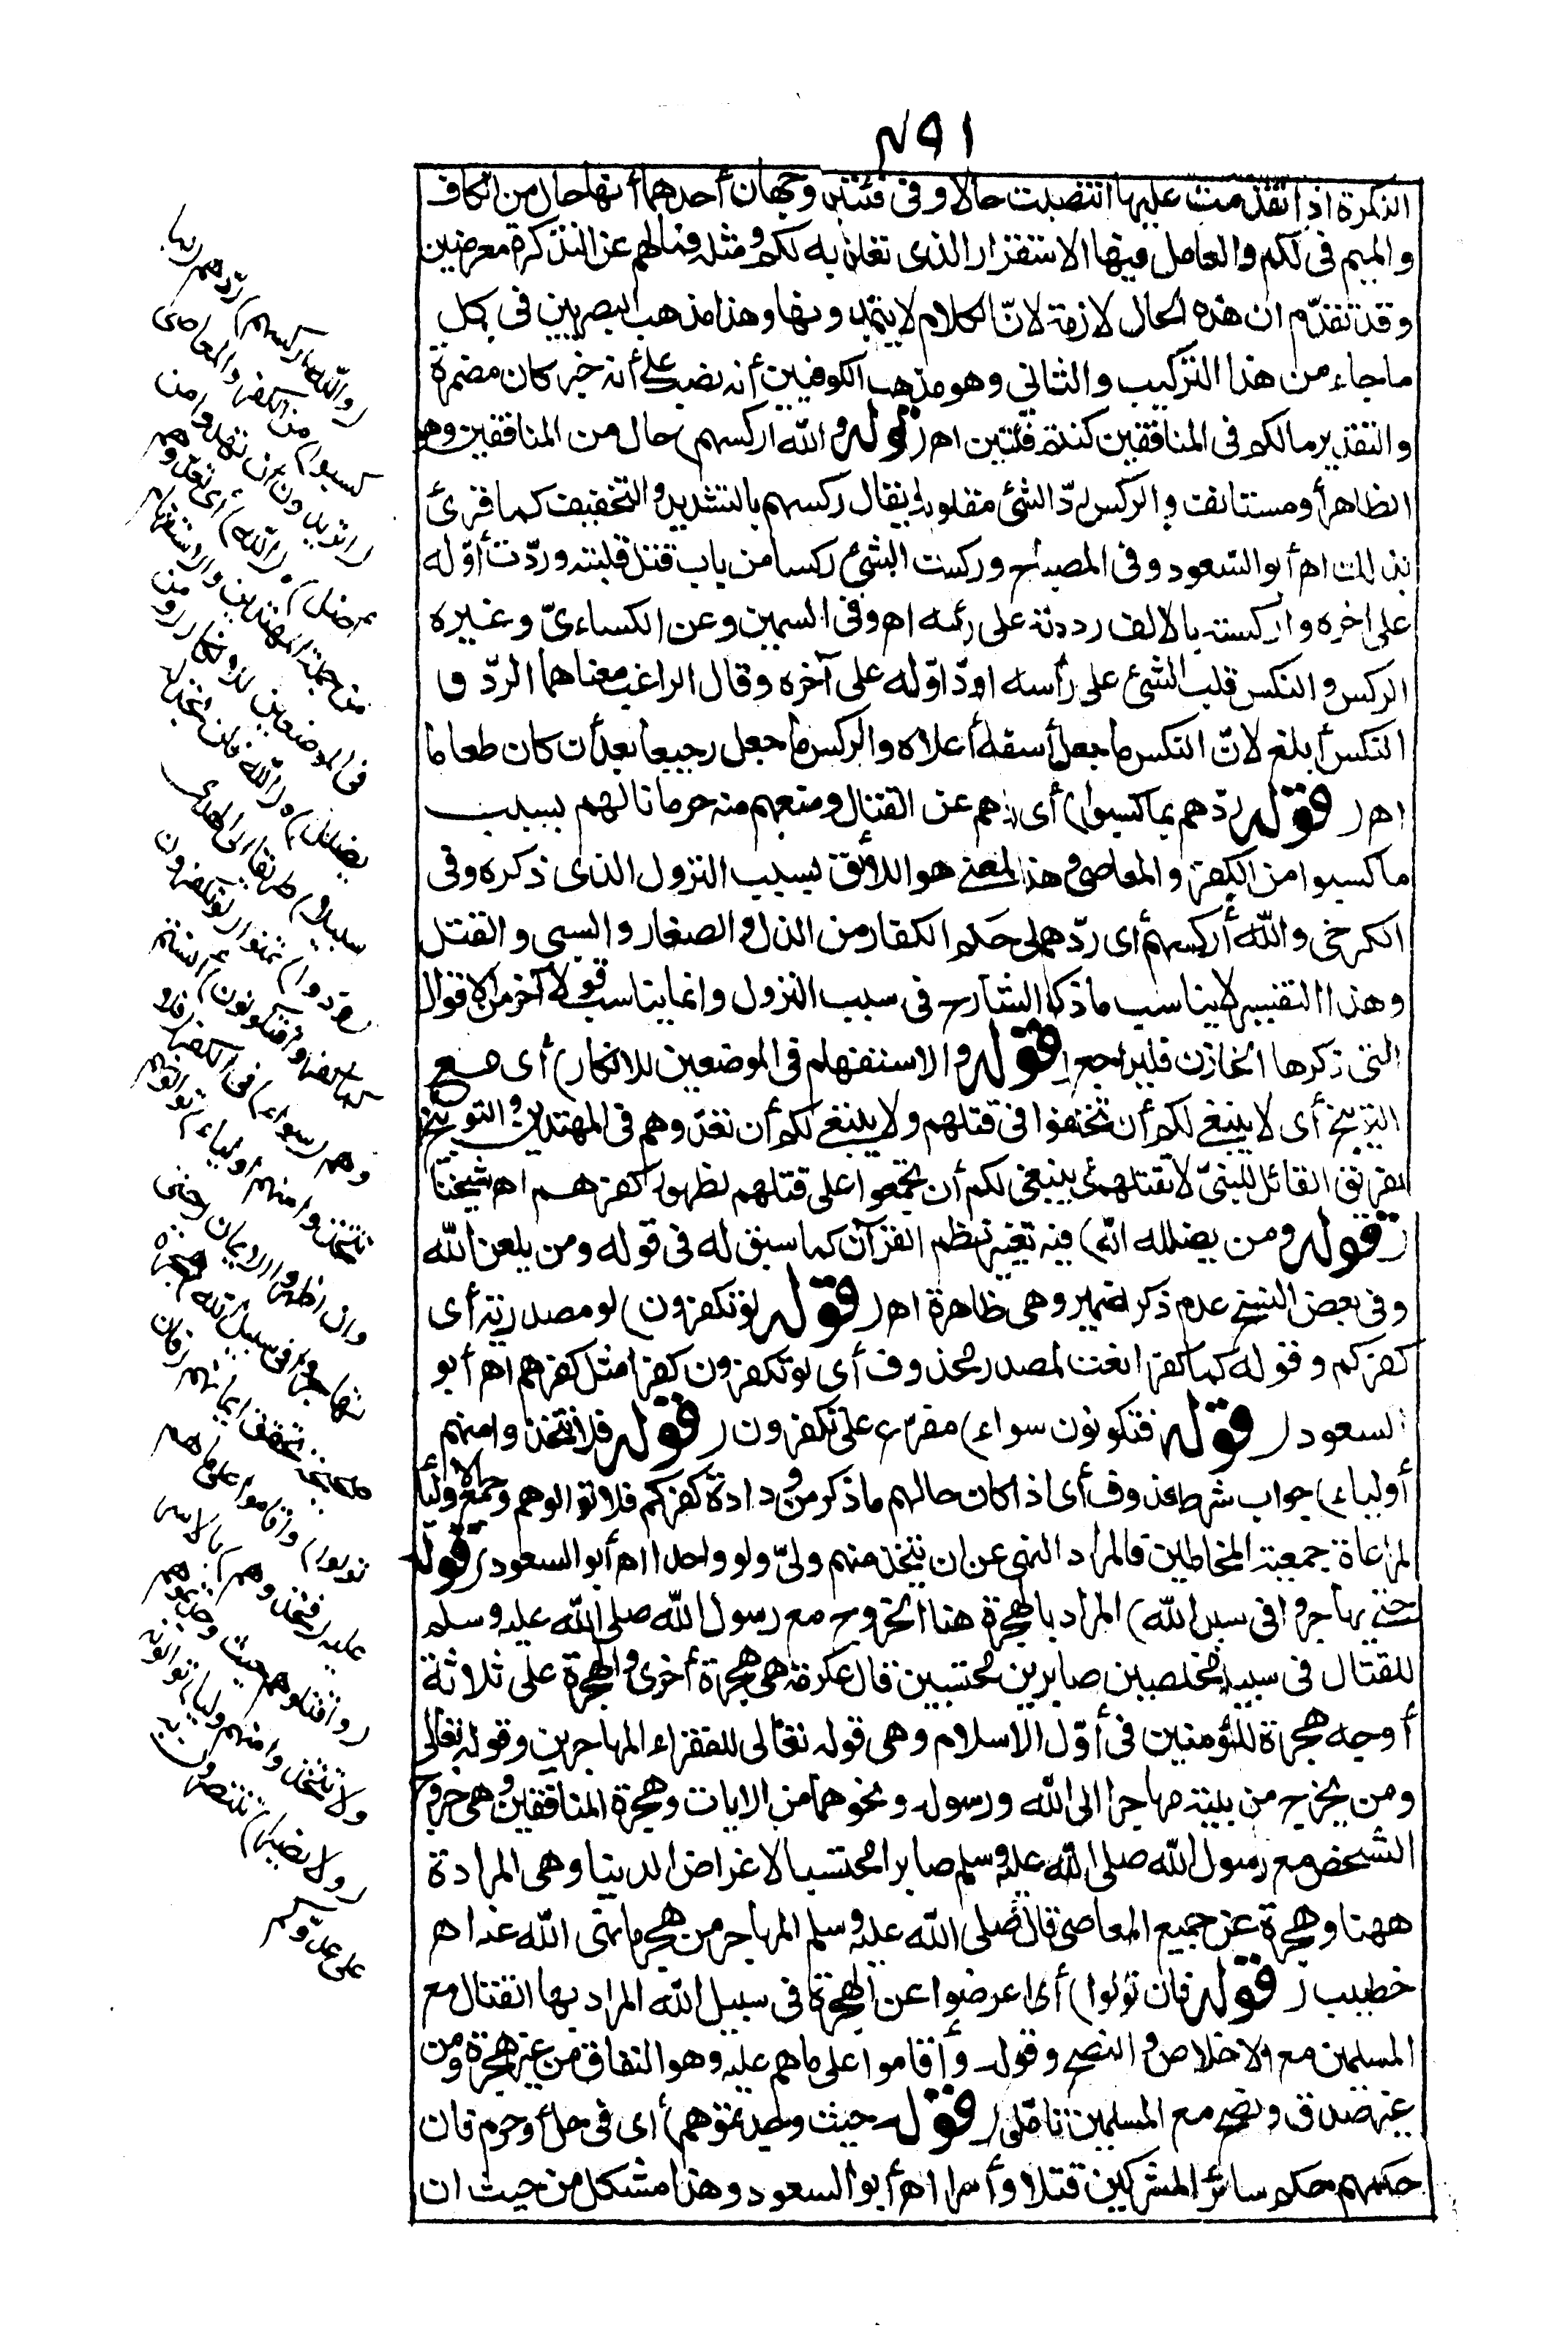 ٤٩١
النكرة اذا تقدمت عليها انتصبت حالا وفى فئتين وجهان أحدهما أنها حال من الكاف
والميم فى لكم والعامل فيها الاستقرار الذى تعلق به لكم ومثله فمالهم عن التذكرة معرضين
وقد تقدّم ان هذه الحال لازمة لانّ الكلام لا يتم بدونها وهذا مذهب البصريين فى كل
ما جاء من هذا التركيب والثانى وهو مذهب الكوفيين أنه نصب على أنه خبر كان مضمرة
والتقدير مالكم فى المنافقين كنتم فئتين اه (قوله والله اركسهم) حال من المنافقين وهو
الظاهر أو مستأنف والركس ردّ الشئ مقلوبا يقال ركسهم بالتشديد والتخفيف كما قرئ
بذلك اه أبو السعود وفى المصباح وركست الشئ ركسا من باب قتل قلبته ورددت أوّله
على اخره واركسته بالالف رددته على رأسه اه وفى السمين وعن الكساءىّ وغيره
الركس والنكس قلب الشئ على رأسه او ردّ اوّله على آخره وقال الراغب معناهما الردّ و
النكس أبلغ لانّ النكس ما جعل أسفله أعلاه والركس ما جعل رجيعا بعد أن كان طعاما
اه (قوله ردّهم بما كسبوا) أى ردهم عن القتال ومنعهم منه حرمانا لهم بسبب
ما كسبوا من الكفر والمعاصى وهذا المعنى هو اللائق بسبب النزول الذى ذكره وفى
الكرخى والله أركسهم أى ردّهم الى حكم الكفار من الذل والصغار والسبى والقتل
وهذا التفسير لا يناسب ما ذكره الشارح فى سبب النزول وانما يناسب قولا آخر من الاقوال
التى ذكرها الخازن فليراجع (قوله والاستفهام فى الموضعين للانكار) أى مع
التوبيخ أى لا ينبغى لكم أن تختلفوا فى قتلهم ولا ينبغى لكم أن تعدّوهم فى المهتدين والتوبيخ
للفريق القائل للنبىّ لا تقتلهم أى ينبغى لكم أن تجمعوا على قتلهم لظهور كفرهم اه شيخنا
(قوله ومن يضلله الله) فيه تغيير نظم القرآن كما سبق له فى قوله ومن يلعن الله
وفى بعض النسخ عدم ذكر الضمير وهى ظاهرة اه (قوله لو تكفرون) لو مصدرية أى
كفركم وقوله كما كفروا نعت لمصدر محذوف أى لو تكفرون كفرا مثل كفرهم اه أبو
السعود (قوله فتكونون سواء) مفرّع على تكفرون (قوله فلا تتخذوا منهم
أولياء) جواب شرط محذوف أى اذا كان حالهم ما ذكر من ودادة كفركم فلا توالوهم وجمع الاولياء
لمراعاة جمعية المخاطبين فالمراد النهى عن ان يتخذ منهم ولىّ ولو واحدا اه أبو السعود (قوله
حتى يهاجروا فى سبيل الله) المراد بالهجرة هنا الخروج مع رسول الله صلى الله عليه وسلم
للقتال فى سبيله مخلصين صابرين محتسبين قال عكرمة هى هجرة أخرى والهجرة على ثلاثة
أوجه هجرة للمؤمنين فى أوّل الاسلام وهى قوله تعالى للفقراء المهاجرين وقوله تعالى
ومن يخرج من بيته مهاجرا الى الله ورسوله ونحوهما من الايات وهجرة المنافقين وهى خروج
الشخص مع رسول الله صلى الله عليه وسلم صابرا محتسبا لا غراض الدنيا وهى المرادة
ههنا وهجرة عن جميع المعاصى قال صلى الله عليه وسلم المهاجر من هجر ما نهى الله عنه اه
خطيب (قوله فان تولوا) أى اعرضوا عن الهجرة فى سبيل الله المراد بها القتال مع
المسلمين مع الاخلاص والنصح وقوله وأقاموا على ما هم عليه وهو النفاق من غير هجرة ومن
غير صدق ونصح مع المسلمين تأمّل (قوله حيث وجدتموهم) أى فى حل أو حرم فان
حكمهم حكم سائر المشركين قتلا وأسرا اه أبو السعود وهذا مشكل من حيث ان
(والله اركسهم) ردّهم (بما
كسبوا) من الكفر والمعاصى
(اتريدون ان تهدوا من
اضل) ه (الله) أى تعدّوهم
من جملة المهتدين والاستفهام
فى الموضعين للانكار (ومن
يضلل) ه (الله فلن تجد له
سبيلا) طريقا الى الهدى
(ودّوا) تمنوا (لو تكفرون
كما كفروا فتكونون) أنتم
وهم (سواء) فى الكفر (فلا
تتخذوا منهم اولياء) توالونهم
وان اظهروا الايمان (حتى
يهاجروا فى سبيل الله) هجرة
صحيحة تحقق ايمانهم (فان
تولوا) واقاموا على ما هم
عليه (فخذوهم) بالاسر
(واقتلوهم حيث وجدتموهم
ولا تتخذوا منهم وليا) توالونه
(ولا نصيرا) تنتصرون به
على عدوّكم